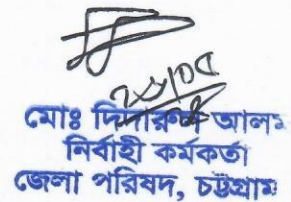 ২১/০৫
মোঃ দিদারুল আলম
নির্বাহী কর্মকর্তা
জেলা পরিষদ, চট্টগ্রাম